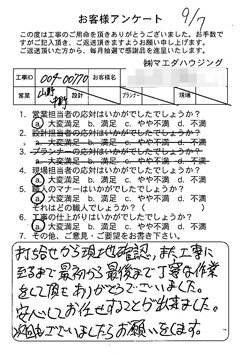 お客様アンケート
9/7
この度は工事のご用命を頂きありがとうございました。お手数で
すがご記入頂き、ご返送頂きますようお願い申し上げます。
ご返送頂いた方から、毎月抽選で感謝品を進呈いたします。
㈱マエダハウジング
工事ID 004-00770 お客様名
営業 山野 中野 設計 プランナー 現場
1. 営業担当者の応対はいかがでしたでしょうか?
a 大変満足 b. 満足 c. やや不満 d. 不満
2. 設計担当者の応対はいかがでしたでしょうか?
a. 大変満足 b. 満足 c. やや不満 d. 不満
3. プランナーの応対はいかがでしたでしょうか?
a. 大変満足 b. 満足 c. やや不満 d. 不満
4. 現場担当者の応対はいかがでしたでしょうか?
a 大変満足 b. 満足 c. やや不満 d. 不満
5. 職人のマナーはいかがでしたでしょうか?
a 大変満足 b. 満足 c. やや不満 d. 不満
それはどの職人でしょうか?( )
6. 工事の仕上がりはいかがでしたでしょうか?
a 大変満足 b. 満足 c. やや不満 d. 不満
7. その他、ご意見・ご要望をお書き下さい。
打ち合せから現地確認、また工事に
至るまで最初から最後まで丁寧な作業
をして頂きありがとうございました。
安心してお任せすることが出来ました。
次回もございましたらお願いをします。